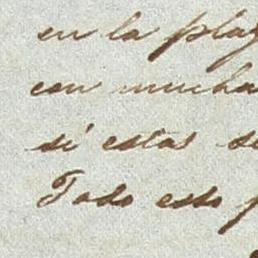 en la plaz
con mucha
si estas se
Todo esto p